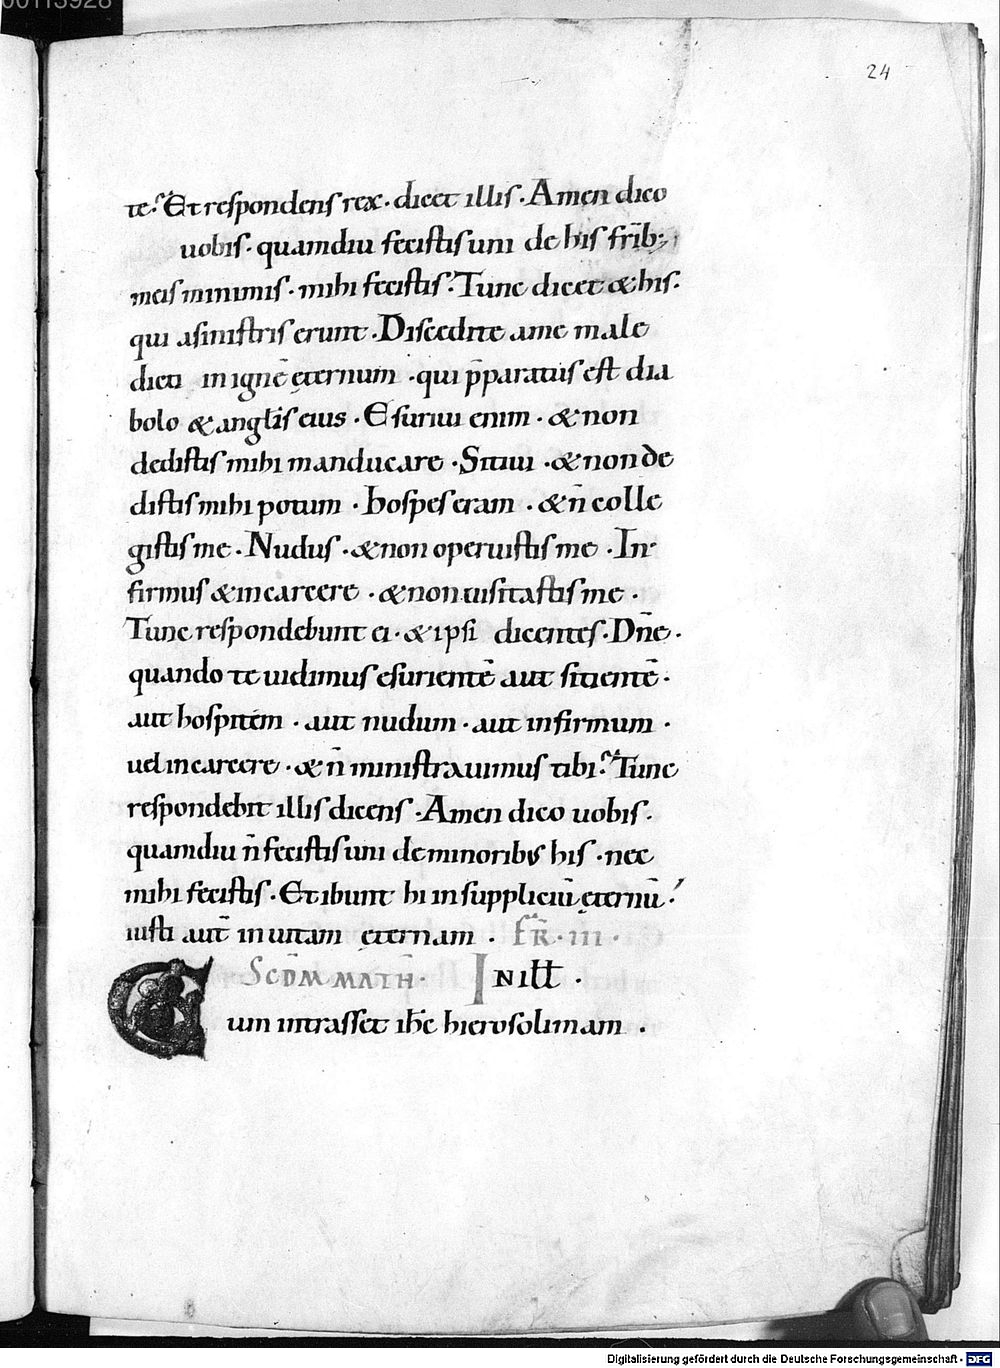 00113928
24
te? Et respondens rex. dicet illis. Amen dico
uobis. quamdiu fecistis uni de his fr̄ib;
meis minimis. mihi fecistis. Tunc dicet & his.
qui a sinistris erunt. Discedite a me male
dicti in ignē ęternum. qui p̄paratus est dia
bolo & anglis eius. Esuriui enim. & non
dedistis mihi manducare. Sitiui. & non de
distis mihi potum. hospes eram. & n̄ colle
gistis me. Nudus. & non operuistis me. In
firmus & in carcere. & non uisitastis me.
Tunc respondebunt ei. & ipsi dicentes. Dn̄e.
quando te uidimus esurientē aut sitientē.
aut hospitem. aut nudum. aut infirmum.
uel in carcere. & n̄ ministrauimus tibi? Tunc
respondebit illis dicens. Amen dico uobis.
quamdiu n̄ fecistis uni de minoribus his. nec
mihi fecistis. Et ibunt hi in suppliciū ęternū.
iusti aut̄ in uitam ęternam. FR̄. III.
SCDM̄ MATH̄. INITT.
Cum intrasset ih̄c hierosolimam.
Digitalisierung gefördert durch die Deutsche Forschungsgemeinschaft - DFG